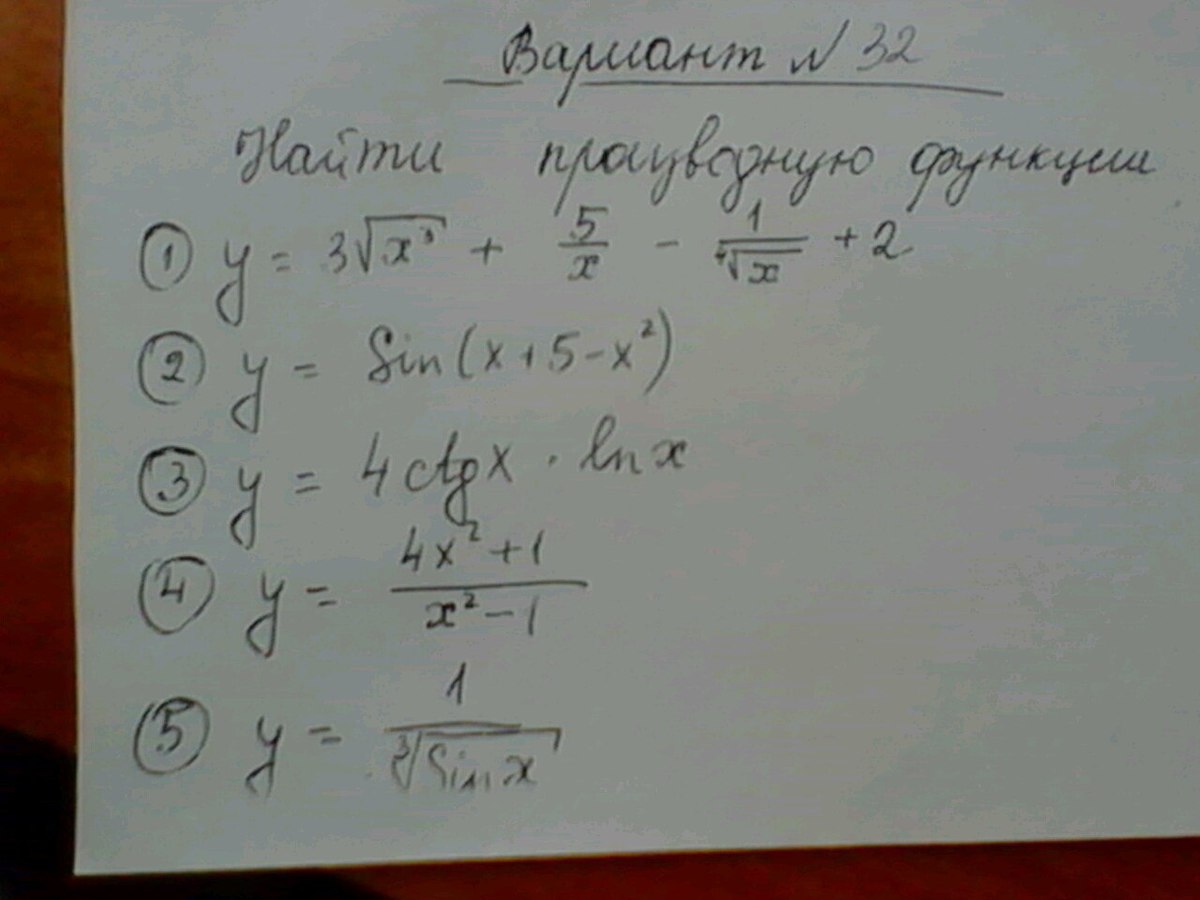 Вариант N 32
Найти производную функции
① y = 3√x³ + 5/x - 1/⁴√x + 2
② y = Sin(x+5-x²)
③ y = 4ctgx · lnx
④ y = (4x²+1)/(x²-1)
⑤ y = 1/³√Sin x